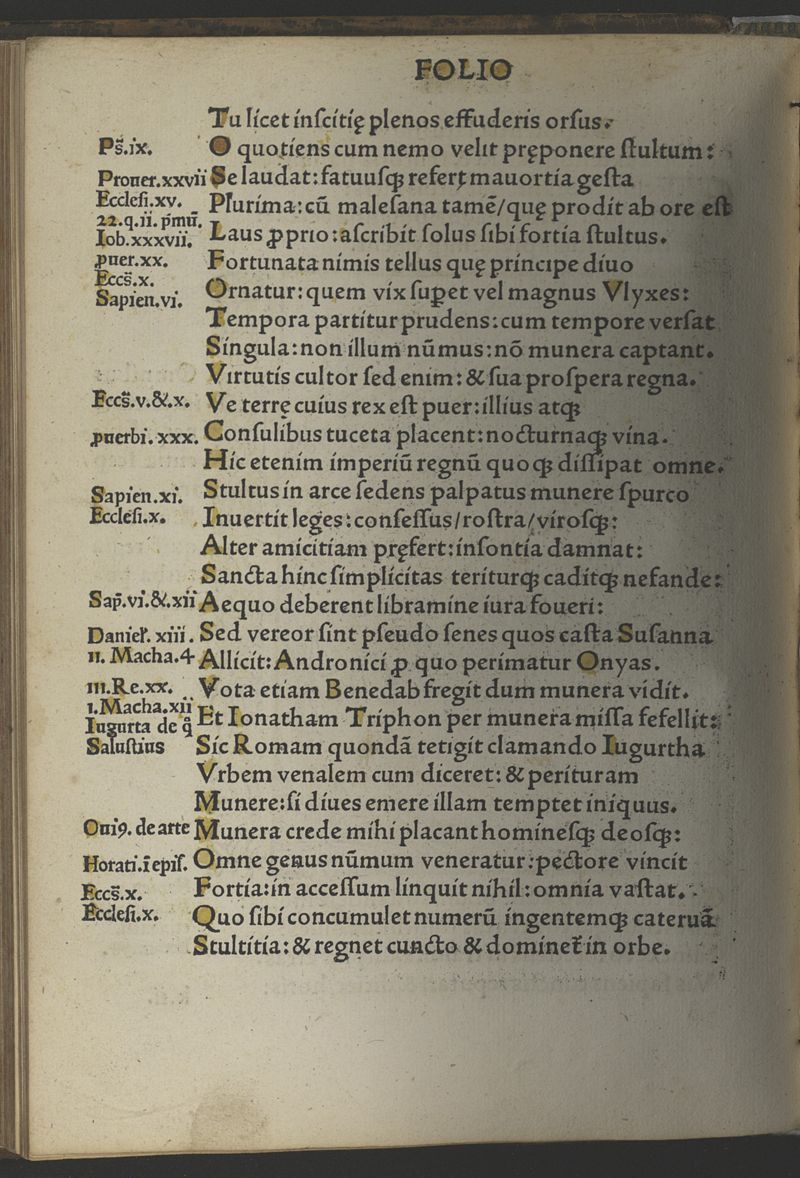 FOLIO
Tu licet inſcitię plenos effuderis orſus.
Ps̄.ix. O quotiens cum nemo velit pręponere ſtultum:
Prouer.xxvii Se laudat: fatuuſqꝫ refert mauortia geſta
Eccleſi.xv. Plurima: cū maleſana tamē/quę prodit ab ore eſt
22.q.ii.p̄mū.
Iob.xxxvii. Laus ꝓprio: aſcribit ſolus ſibi fortia ſtultus.
ꝓuer.xx. Fortunata nimis tellus quę principe diuo
Eccs̄.x.
Sapien.vi. Ornatur: quem vix ſuꝑet vel magnus Vlyxes:
Tempora partitur prudens: cum tempore verſat
Singula: non illum nūmus: nō munera captant.
Virtutis cultor ſed enim: & ſua proſpera regna.
Eccs̄.v.&.x. Ve terrę cuius rex eſt puer: illius atqꝫ
ꝓuerbi.xxx. Conſulibus tuceta placent: nocturnaqꝫ vina.
Hic etenim imperiū regnū quoqꝫ diſſipat omne.
Sapien.xi. Stultus in arce ſedens palpatus munere ſpurco
Eccleſi.x. Inuertit leges: conſeſſus/roſtra/viroſqꝫ:
Alter amicitiam pręfert: inſontia damnat:
Sancta hinc ſimplicitas teriturqꝫ caditqꝫ nefande:
Sap̄.vi.&.xii Aequo deberent libramine iura foueri:
Daniel̄. xiii. Sed vereor ſint pſeudo ſenes quos caſta Suſanna
II. Macha.4 Allicit: Andronici ꝓ quo perimatur Onyas.
III.Re.xx. Vota etiam Benedab fregit dum munera vidit.
I.Macha.xii
Iugurta de q̄ Et Ionatham Triphon per munera miſſa fefellit:
Saluſtius Sic Romam quondā tetigit clamando Iugurtha
Vrbem venalem cum diceret: & perituram
Munere: ſi diues emere illam temptet iniquus.
Oui9. de arte Munera crede mihi placant homineſqꝫ deoſqꝫ:
Horati.ī epiſ. Omne genus nūmum veneratur: pectore vincit
Eccs̄.x. Fortia: in acceſſum linquit nihil: omnia vaſtat.
Eccleſi.x. Quo ſibi concumulet numerū ingentemqꝫ cateruā
Stultitia: & regnet cuncto & dominet̄ in orbe.